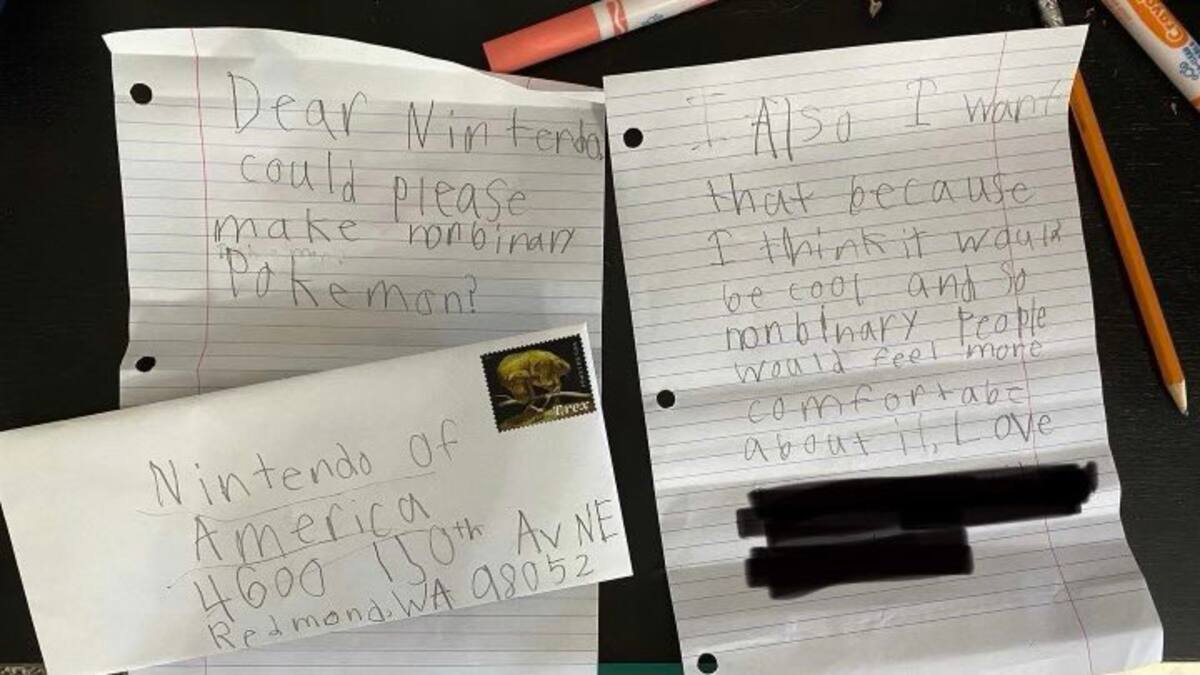 Dear Nintendo,
could please
make nonbinary
Pokemon?
I Also I want
that because
I think it would
be cool and so
nonbinary people
would feel more
comfortabe
about it, Love
T.rex
Nintendo of
America
4600 150th Av NE
Redmond, WA 98052